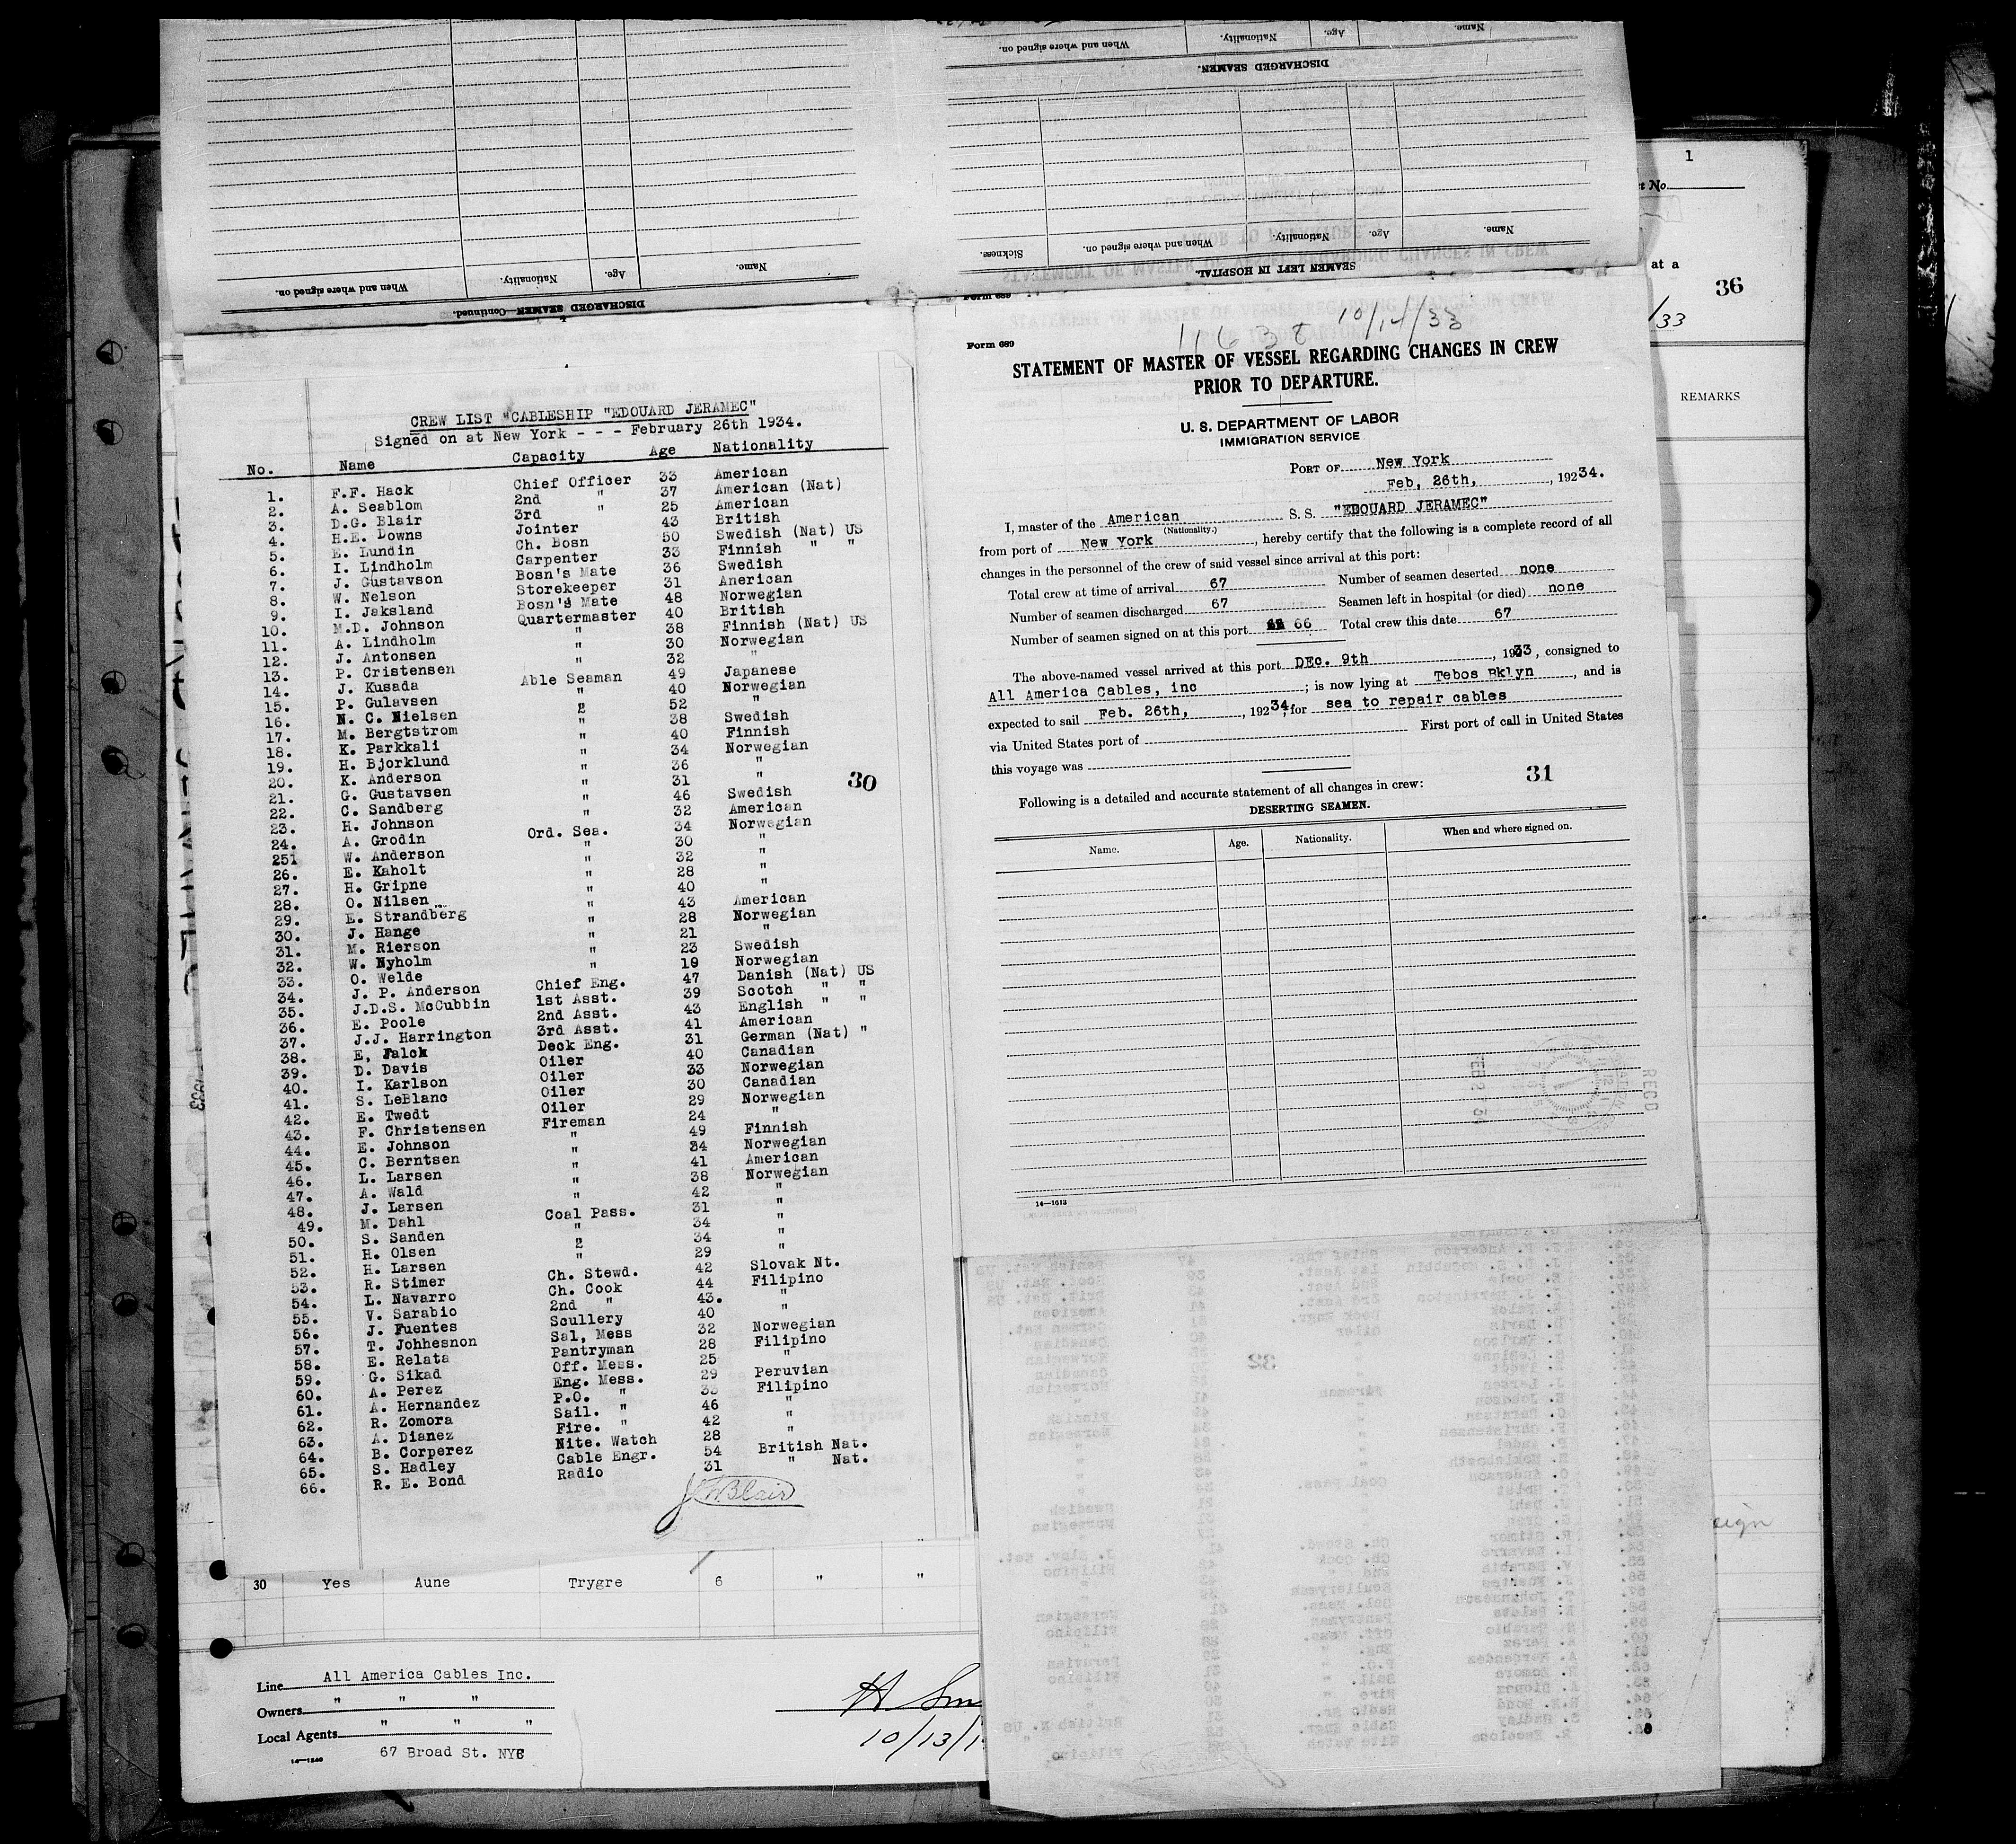 When and where signed on.
Nationality.
Age.
Name.
DISCHARGED SEAMEN.
Sickness.
When and where signed on.
Nationality.
Age.
Name.
SEAMEN LEFT IN HOSPITAL.
When and where signed on.
Nationality.
Age.
Name.
DISCHARGED SEAMEN—Continued.
CREW LIST "CABLESHIP "EDOUARD JERAMEC"
Signed on at New York - - - February 26th 1934.
No. Name Capacity Age Nationality
1. F.F. Hack Chief Officer 33 American
2. A. Seablom 2nd " 37 American (Nat)
3. D.G. Blair 3rd " 25 American
4. H.E. Downs Jointer 43 British
5. E. Lundin Ch. Bosn 50 Swedish (Nat) US
6. I. Lindholm Carpenter 33 Finnish " "
7. J. Gustavson Bosn's Mate 36 Swedish
8. W. Nelson Storekeeper 31 Anerican
9. I. Jaksland Bosn's Mate 48 Norwegian
10. M.D. Johnson Quartermaster 40 British
11. A. Lindholm " 38 Finnish (Nat) US
12. J. Antonsen " 30 Norwegian
13. P. Cristensen " 32 "
14. J. Kusada Able Seaman 49 Japanese
15. P. Gulavsen " 40 Norwegian
16. N. C. Nielsen 2 52 "
17. M. Bergtstrom " 38 Swedish
18. K. Parkkali " 40 Finnish
19. H. Bjorklund " 34 Norwegian
20. K. Anderson " 36 "
21. G. Gustavsen " 31 "
22. C. Sandberg " 46 Swedish
23. H. Johnson " 32 American
24. A. Grodin Ord. Sea. 34 Norwegian
251 W. Anderson " 30 "
26. E. Kaholt " 32 "
27. H. Gripne " 28 "
28. O. Nilsen " 40 "
29. E. Strandberg " 43 American
30. J. Hange " 28 Norwegian
31. M. Rierson " 21 "
32. W. Nyholm " 23 Swedish
33. O. Welde " 19 Norwegian
34. J. P. Anderson Chief Eng. 47 Danish (Nat) US
35. J.D.S. McCubbin 1st Asst. 39 Scotch " "
36. E. Poole 2nd Asst. 43 English " "
37. J.J. Harrington 3rd Asst. 41 American
38. E, Falck Deck Eng. 31 German (Nat) "
39. D. Davis Oiler 40 Canadian
40. I. Karlson Oiler 33 Norwegian
41. S. LeBlanc Oiler 30 Canadian
42. E. Twedt Oiler 29 Norwegian
43. F. Christensen Fireman 24 "
44. E. Johnson " 49 Finnish
45. C. Berntsen " 34 Norwegian
46. L. Larsen " 41 American
47. A. Wald " 38 Norwegian
48. J. Larsen " 42 "
49. M. Dahl Coal Pass. 31 "
50. S. Sanden " 34 "
51. H. Olsen 2 34 "
52. H. Larsen " 29 "
53. R. Stimer Ch. Stewd. 42 Slovak Nt.
54. L. Navarro Ch. Cook 44 Filipino
55. V. Sarabio 2nd " 43. "
56. J. Fuentes Scullery 40 "
57. T. Johhesnon Sal, Mess 32 Norwegian
58. E. Relata Pantryman 28 Filipino
59. G. Sikad Off. Mess. 25 "
60. A. Perez Eng. Mess. 29 Peruvian
61. A. Hernandez P.O. " Filipino
62. R. Zomora Sail. " 46 "
63. A. Dianez Fire. " 42 "
64. B. Corperez Nite. Watch 28 "
65. S. Hadley Cable Engr. 54 British Nat.
66. R. E. Bond Radio 31 " Nat.
30
30 Yes Aune Trygre 6 " "
Line All America Cables Inc.
Owners " " "
Local Agents " " "
67 Broad St. NYC
14—1240
10/13/1
Form 689
11638 10/14/33
Form 689
STATEMENT OF MASTER OF VESSEL REGARDING CHANGES IN CREW
PRIOR TO DEPARTURE.
U. S. DEPARTMENT OF LABOR
IMMIGRATION SERVICE
PORT OF New York
Feb, 26th, , 1923 4.
I, master of the American S. S. "EDOUARD JERAMEC"
(Nationality.)
from port of New York, hereby certify that the following is a complete record of all
changes in the personnel of the crew of said vessel since arrival at this port:
Total crew at time of arrival 67 Number of seamen deserted none
Number of seamen discharged 67 Seamen left in hospital (or died) none
Number of seamen signed on at this port 66 Total crew this date 67
The above-named vessel arrived at this port DEc. 9th, 1933, consigned to
All America Cables, inc ; is now lying at Tebos Bklyn, and is
expected to sail Feb. 26th, , 19234, for sea to repair cables
via United States port of First port of call in United States
this voyage was
31
Following is a detailed and accurate statement of all changes in crew:
DESERTING SEAMEN.
Name. Age. Nationality. When and where signed on.
14—1613
1
at a
36
/33
REMARKS